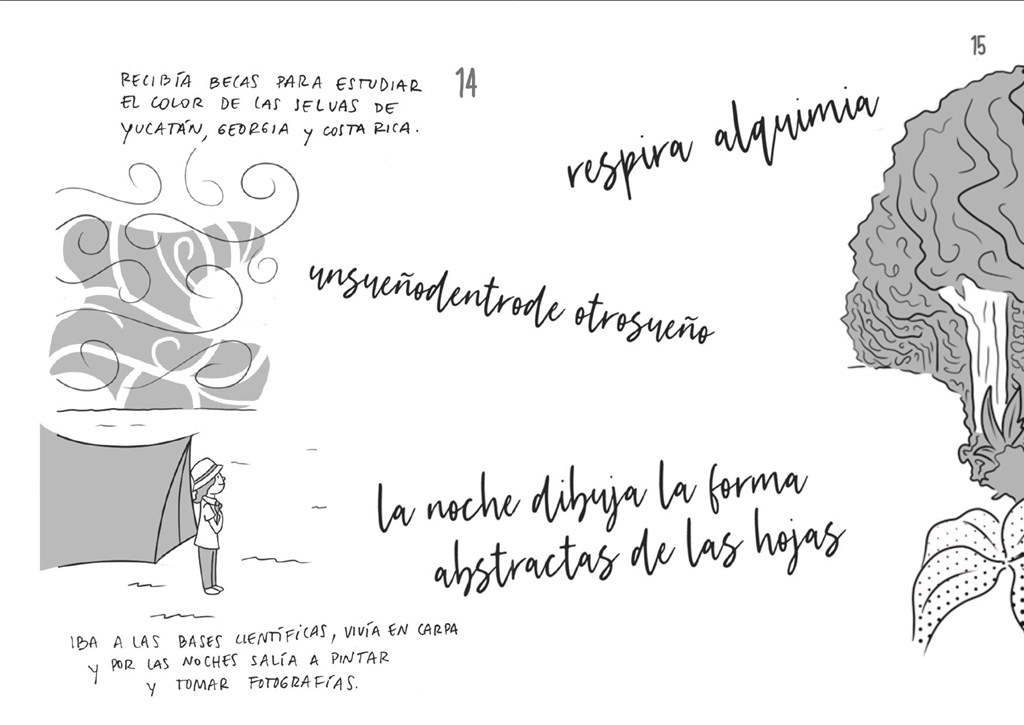 14
RECIBÍA BECAS PARA ESTUDIAR
EL COLOR DE LAS SELVAS DE
YUCATÁN, GEORGIA Y COSTA RICA.
IBA A LAS BASES CIENTÍFICAS, VIVÍA EN CARPA
Y POR LAS NOCHES SALÍA A PINTAR
Y TOMAR FOTOGRAFÍAS.
15
respira alquimia
unsueñodentrode otrosueño
la noche dibuja la forma
abstractas de las hojas